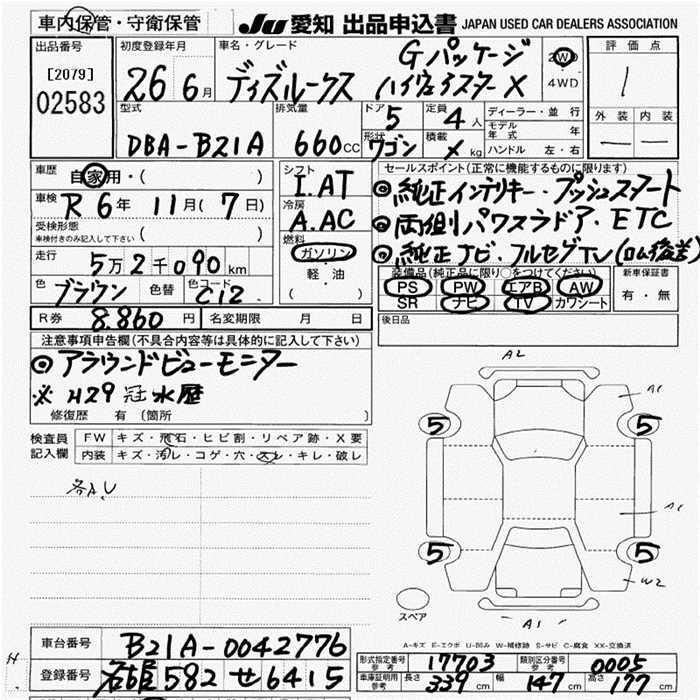 車内保管・守衛保管 JU 愛知 出品申込書 JAPAN USED CAR DEALERS ASSOCIATION
出品番号
[2079]
02583
初度登録年月
26 6月
車名・グレード
Gパッケージ
デイズルークス ハイウェイスターX
2WD
4WD
評価点
1
外装 内装
— —
型式
DBA-B21A
排気量
660cc
ドア 5
定員 4人
形状 ワゴン
積載 ✕ kg
ディーラー・並行
モデル年式 年
ハンドル 左・右
車歴 自家用・( )
車検 R 6年 11月(7日)
受検形態
車検付きのみ記入して下さい ( )
走行
5万2千090km
色 ブラウン 色替 色コード C12
シフト
I.AT
冷房
A.AC
燃料
ガソリン
軽・油
( )
セールスポイント(正常に機能するものに限ります)
◎ 純正インテリキー・プッシュスタート
◎ 両側パワスラドア・ETC
◎ 純正ナビ・フルセグTV(ロム後差)
装備品(純正品に限り○をつけてください)
PS PW エアB AW
SR ナビ TV カワシート
新車保証書
有・無
R券 8.860円 名変期限 月 日
後日品
注意事項申告欄(不具合内容等は具体的に記入して下さい)
◎ アラウンドビューモニター
※ H29 冠水歴
修復歴 有 〔箇所 〕
検査員記入欄
FW キズ・飛石・ヒビ割・リペア跡・X要
内装 キズ・汚レ・コゲ・穴・スレ・キレ・破レ
各A.U
A2
A1
5 5
5 5
W2
A1
スペア
A-キズ E-エクボ U-凹み W-補修跡 S-サビ C-腐食 XX-交換済
車台番号 B21A-0042776
登録番号 名古屋582 せ 6415
形式指定番号 参考 17703 類別区分番号 参考 0005
車庫証明用 参考 長さ 339cm 幅 147cm 高さ 177cm